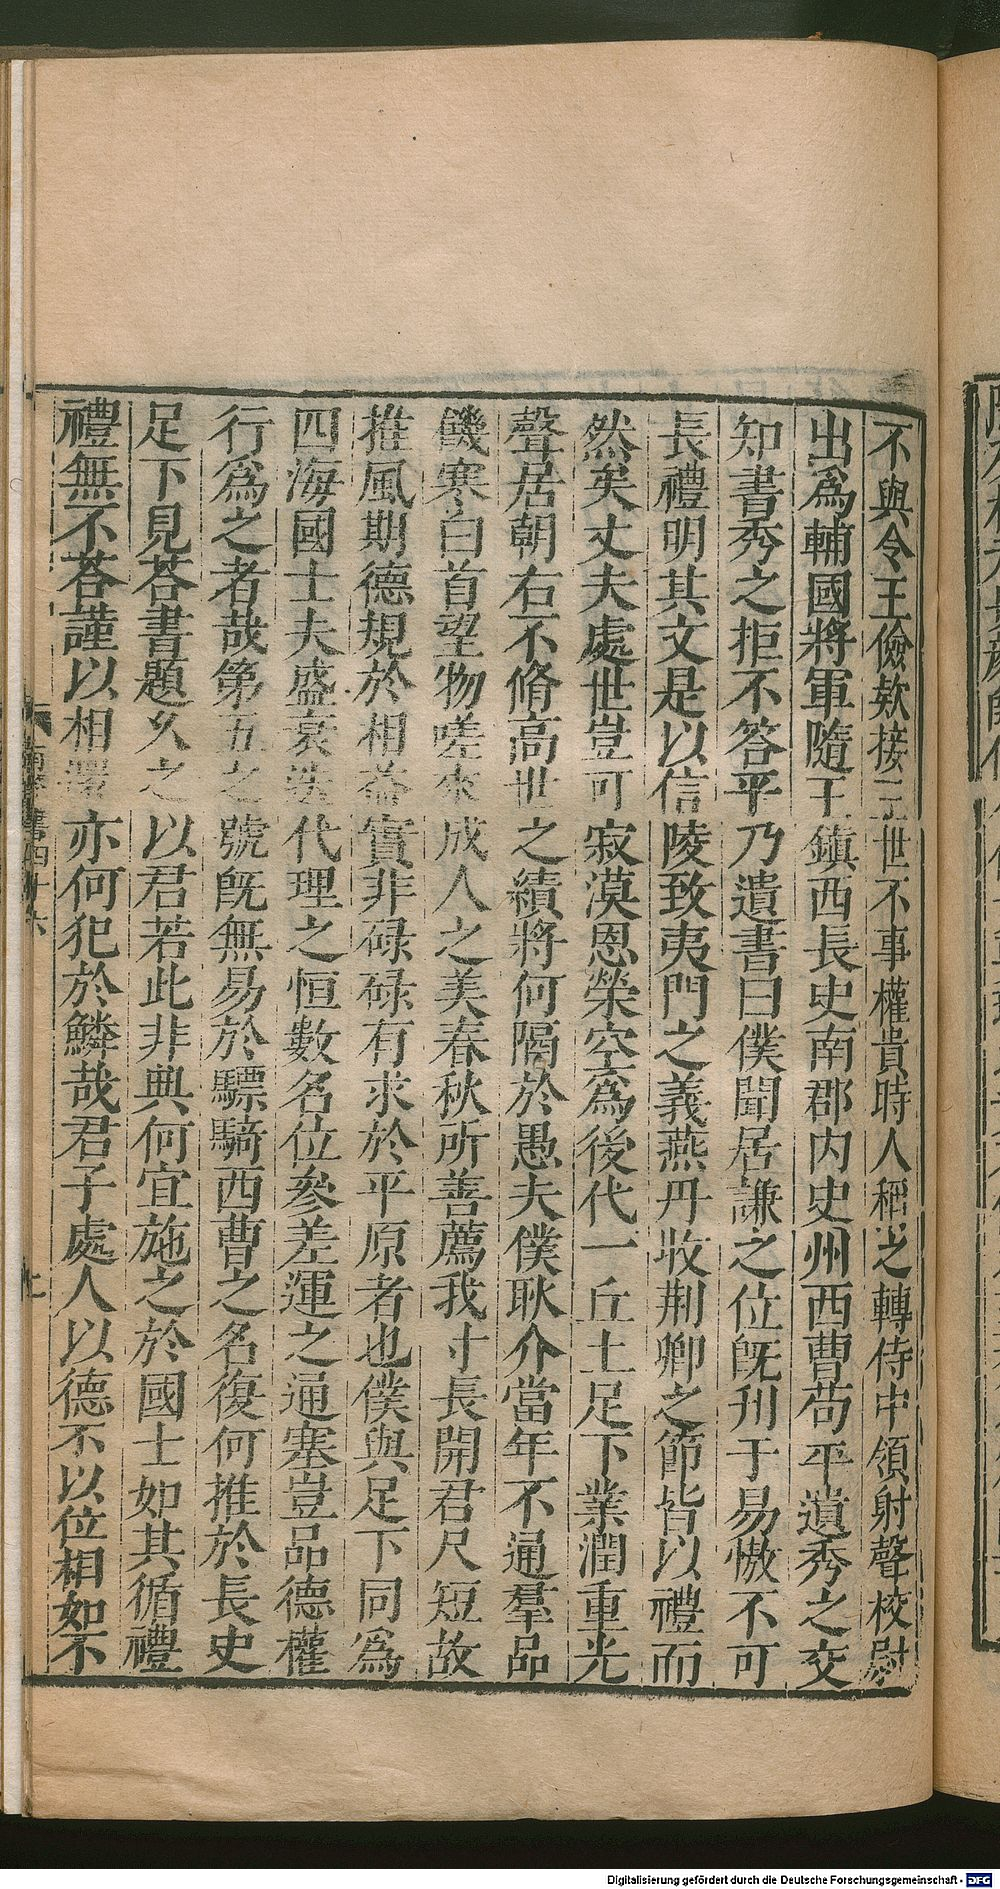 不與令王儉欸接三世不事權貴時人稱之轉侍中領射聲校尉
出爲輔國將軍隨王鎮西長史南郡内史州西曹苟平遺秀之交
知書秀之拒不答平乃遺書曰僕聞居謙之位既刊于易慠不可
長禮明其文是以信陵致夷門之義燕丹收荆卿之節皆以禮而
然矣丈夫處世豈可寂漠恩榮空爲後代一丘土足下業潤重光
聲居朝右不脩高世之績將何隔於愚夫僕耿介當年不通羣品
饑寒白首望物嗟來成人之美春秋所善薦我寸長開君尺短故
推風期德規於相益實非碌碌有求於平原者也僕與足下同爲
四海國士夫盛衰迭代理之恒數名位參差運之通塞豈品德權
行爲之者哉第五之號既無易於驃騎西曹之名復何推於長史
足下見荅書題久之以君若此非典何宜施之於國士如其循禮
禮無不荅謹以相還亦何犯於鱗哉君子處人以德不以位相如不
南齊書四十六
Digitalisierung gefördert durch die Deutsche Forschungsgemeinschaft - DFG